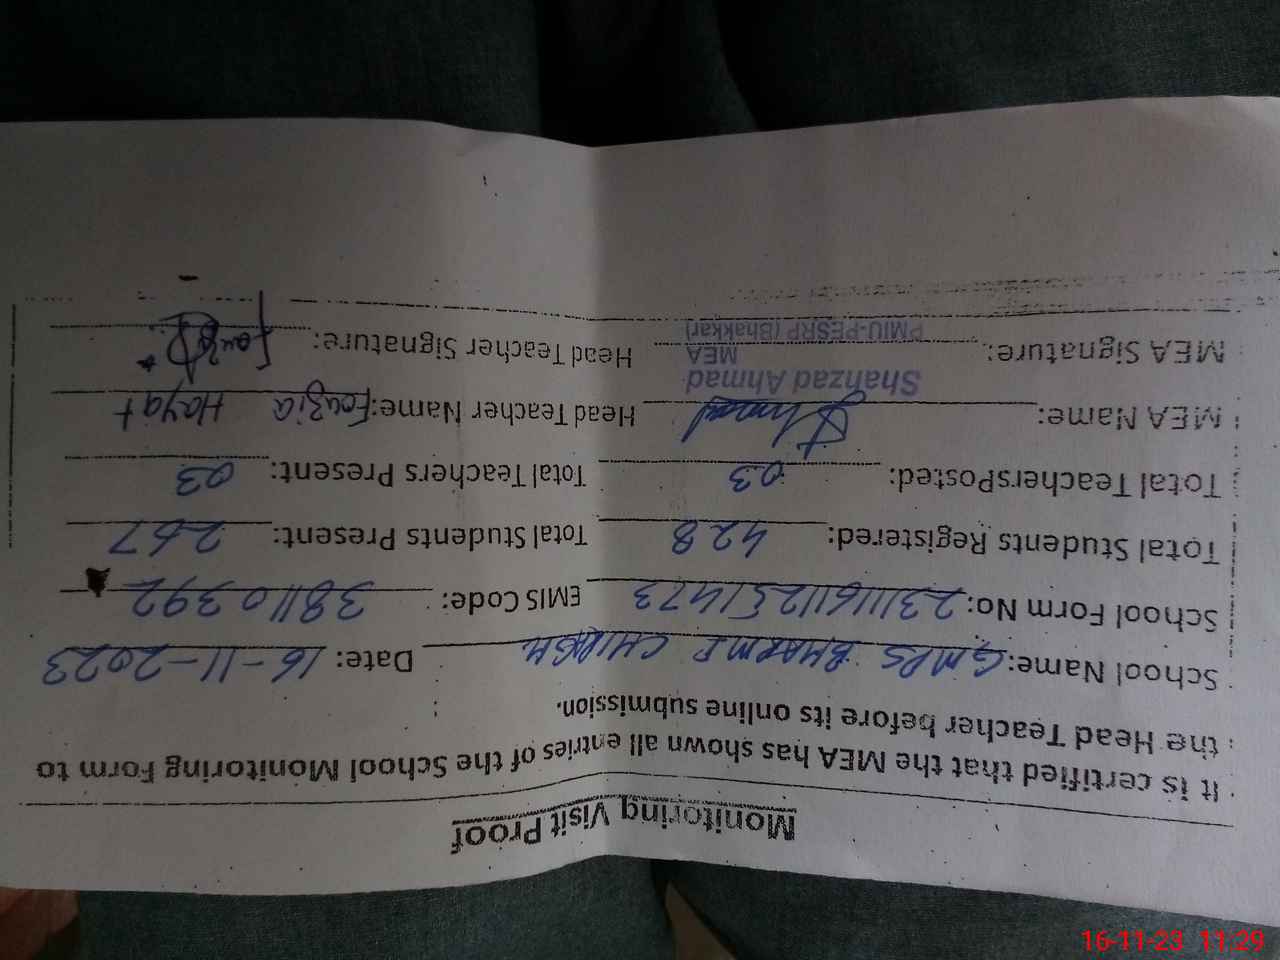 Monitoring Visit Proof
It is certified that the MEA has shown all entries of the School Monitoring Form to
the Head Teacher before its online submission.
School Name: GMPS CHIRAGH Date: 16-11-2023
School Form No: 23111611251473 EMIS Code: 38110392
Total Students Registered: 428 Total Students Present: 267
Total TeachersPosted: 03 Total Teachers Present: 03
MEA Name: Head Teacher Name: Fouzia Hayat
Shahzad Ahmad
MEA
MEA Signature: Head Teacher Signature:
PMIU-PESRP (Bhakkar)
16-11-23 11:29